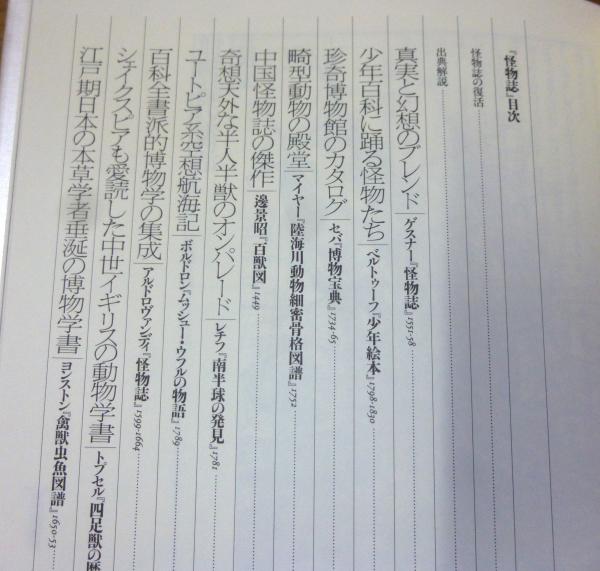 『怪物誌』目次
怪物誌の復活
出典解説
真実と幻想のブレンド ゲスナー『怪物誌』1551-58
少年百科に踊る怪物たち ベルトゥーフ『少年絵本』1798-1830
珍奇博物館のカタログ セバ『博物宝典』1734-65
畸型動物の殿堂 マイヤー『陸海川動物細密骨格図譜』1752
中国怪物誌の傑作 邊景昭『百獣図』1449
奇想天外な半人半獣のオンパレード レチフ『南半球の発見』1781
ユートピア系空想航海記 ボルドロン『ムッシュー・ウフルの物語』1789
百科全書派的博物学の集成 アルドロヴァンディ『怪物誌』1599-1664
シェイクスピアも愛読した中世イギリスの動物学書 トプセル『四足獣の歴
江戸期日本の本草学者垂涎の博物学書 ヨンストン『禽獣虫魚図譜』1650-53